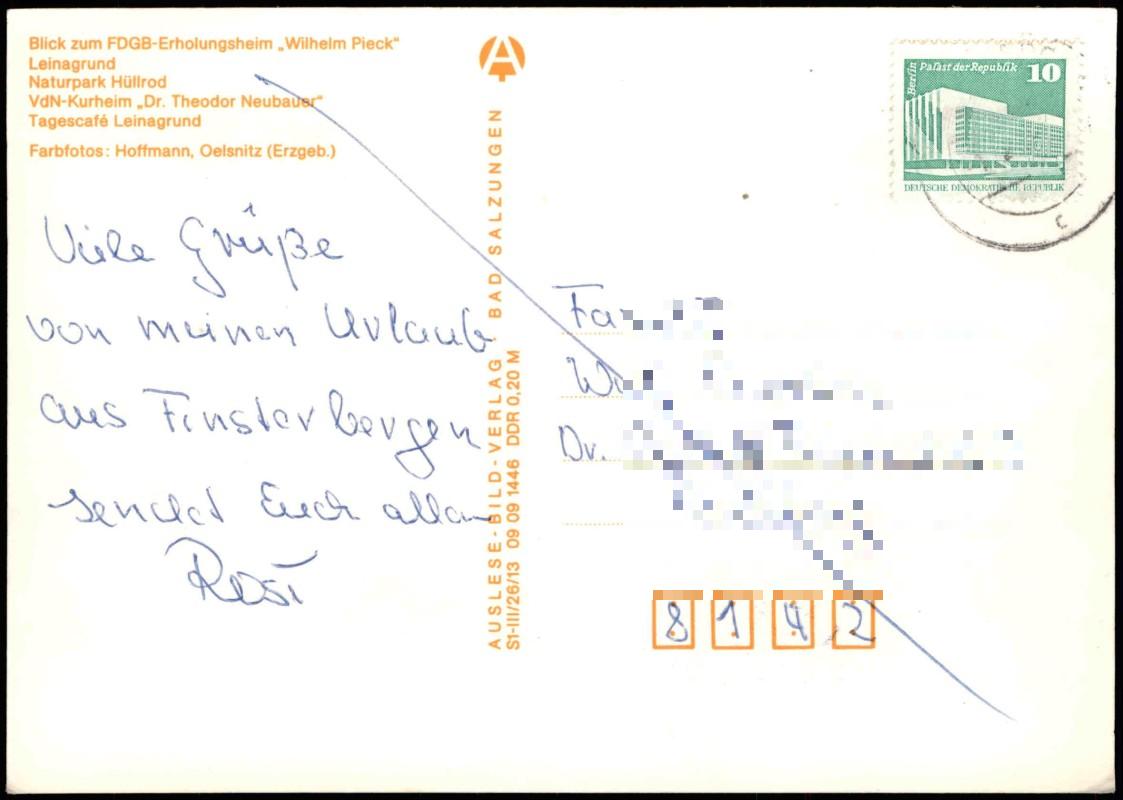 Blick zum FDGB-Erholungsheim „Wilhelm Pieck“
Leinagrund
Naturpark Hüllrod
VdN-Kurheim „Dr. Theodor Neubauer“
Tagescafé Leinagrund
Farbfotos: Hoffmann, Oelsnitz (Erzgeb.)
Viele Grüße
von meinen Urlaub
aus Finsterbergen
sendet Euch allen
Rosi
AUSLESE-BILD-VERLAG BAD SALZUNGEN
S1-III/26/13 09 09 1446 DDR 0,20 M
Berlin
Palast der Republik 10
DEUTSCHE DEMOKRATISCHE REPUBLIK
c
Fa
Wi
Dr.
8142